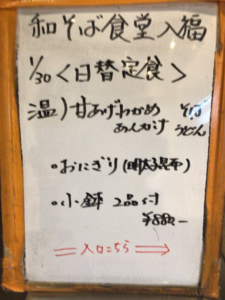 和そば食堂 入福
1/30 <日替定食>
温) 甘あげわかめ そば
あんかけ うどん
・おにぎり (明太昆布)
・小鉢 2品付
¥880-
入口こちら